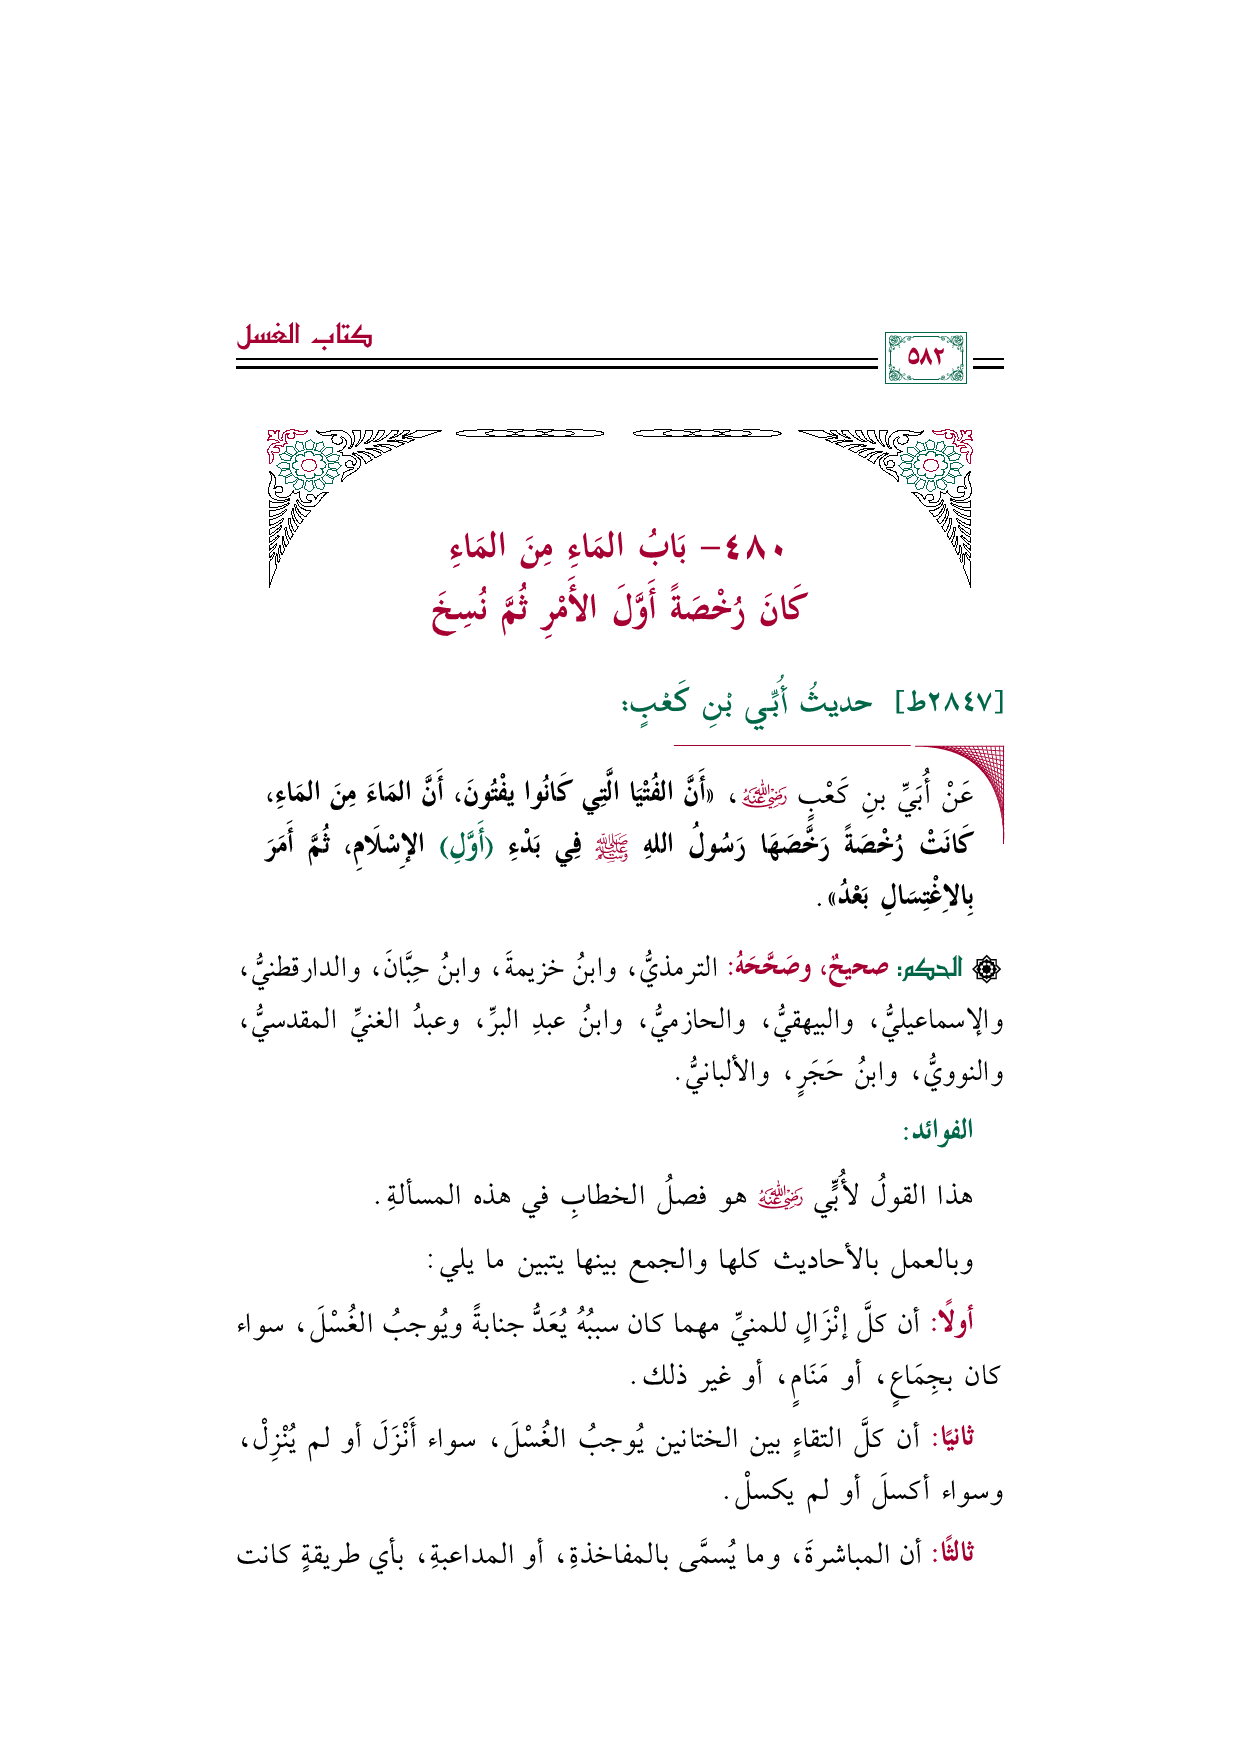 كتاب الغسل
٥٨٢
٤٨٠- بَابُ المَاءِ مِنَ المَاءِ
كَانَ رُخْصَةً أَوَّلَ الأَمْرِ ثُمَّ نُسِخَ
[٢٨٤٧ط] حديثُ أُبَيِّ بْنِ كَعْبٍ:
عَنْ أُبَيِّ بنِ كَعْبٍ رَضِيَ اللهُ عَنْهُ، «أَنَّ الفُتْيَا الَّتِي كَانُوا يفْتُونَ، أَنَّ المَاءَ مِنَ المَاءِ،
كَانَتْ رُخْصَةً رَخَّصَهَا رَسُولُ اللهِ ﷺ فِي بَدْءِ (أَوَّلِ) الإِسْلَامِ، ثُمَّ أَمَرَ
بِالاِغْتِسَالِ بَعْدُ».
الحكم: صحيحٌ، وصَحَّحَهُ: الترمذيُّ، وابنُ خزيمةَ، وابنُ حِبَّانَ، والدارقطنيُّ،
والإسماعيليُّ، والبيهقيُّ، والحازميُّ، وابنُ عبدِ البرِّ، وعبدُ الغنيِّ المقدسيُّ،
والنوويُّ، وابنُ حَجَرٍ، والألبانيُّ.
الفوائد:
هذا القولُ لأُبيٍّ رَضِيَ اللهُ عَنْهُ هو فصلُ الخطابِ في هذه المسألةِ.
وبالعمل بالأحاديث كلها والجمع بينها يتبين ما يلي:
أولًا: أن كلَّ إنْزَالٍ للمنيِّ مهما كان سببُهُ يُعَدُّ جنابةً ويُوجبُ الغُسْلَ، سواء
كان بجِمَاعٍ، أو مَنَامٍ، أو غير ذلك.
ثانيًا: أن كلَّ التقاءٍ بين الختانين يُوجبُ الغُسْلَ، سواء أَنْزَلَ أو لم يُنْزِلْ،
وسواء أكسلَ أو لم يكسلْ.
ثالثًا: أن المباشرةَ، وما يُسمَّى بالمفاخذةِ، أو المداعبةِ، بأي طريقةٍ كانت